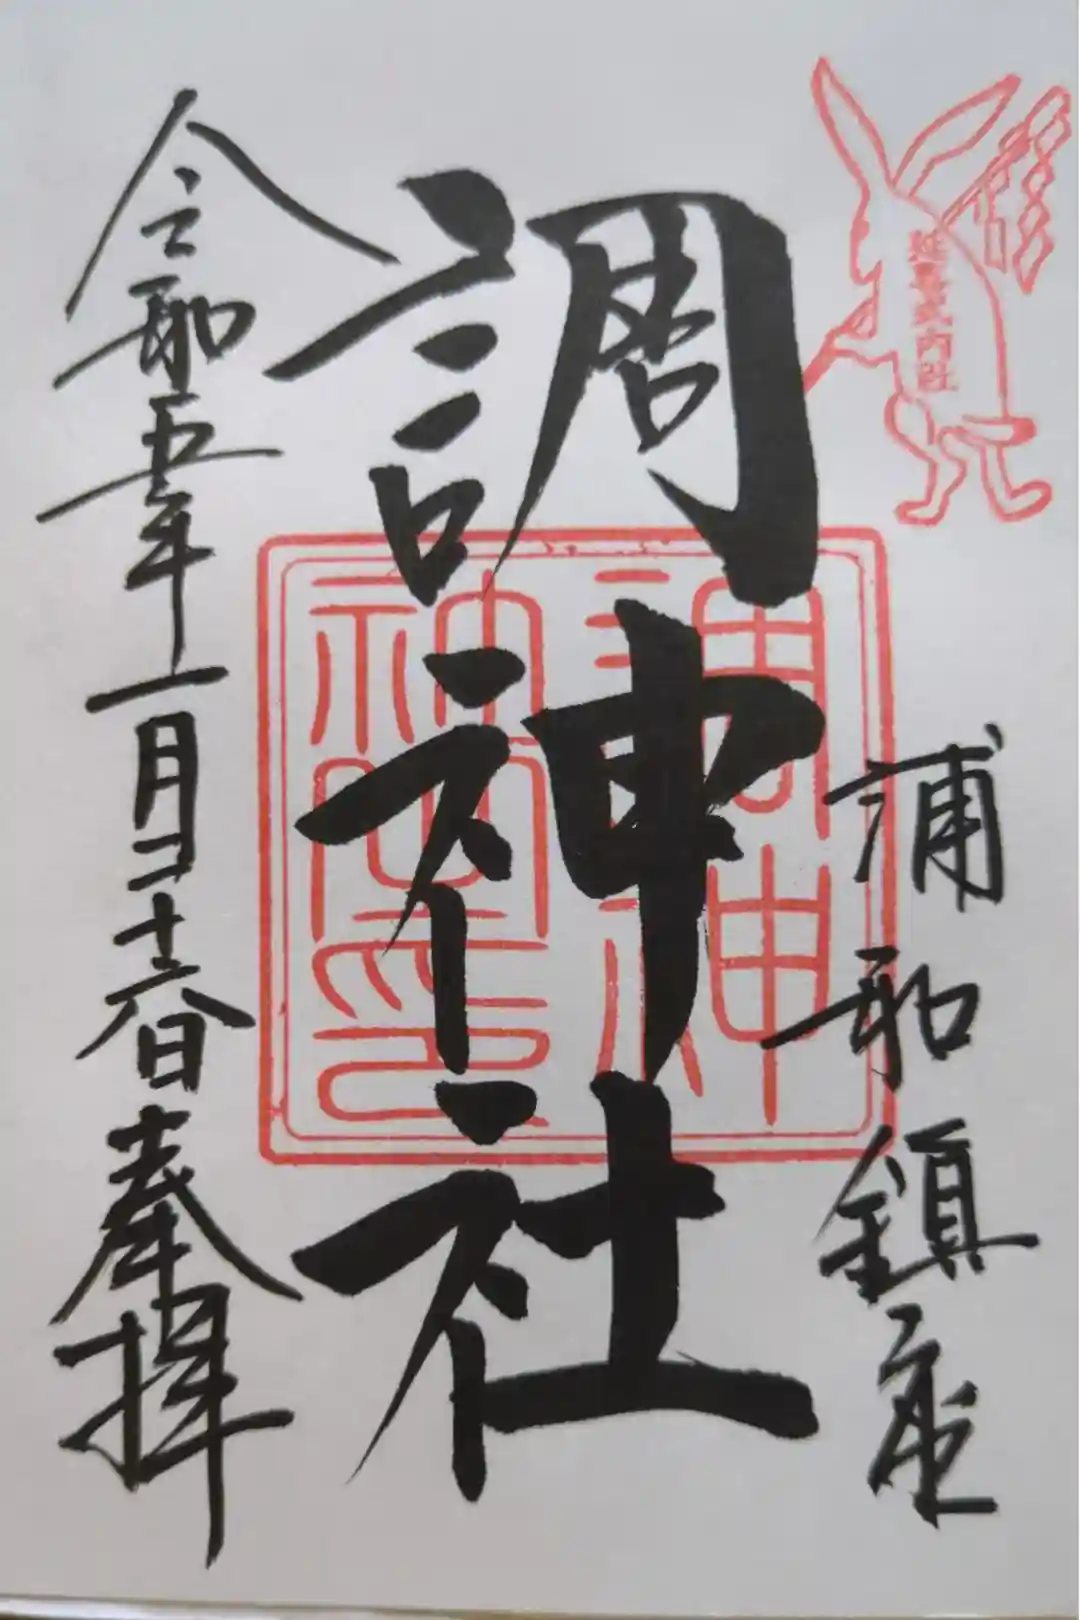 延喜式内社
浦和鎮座
調神社
令和五年一月二十六日奉拝